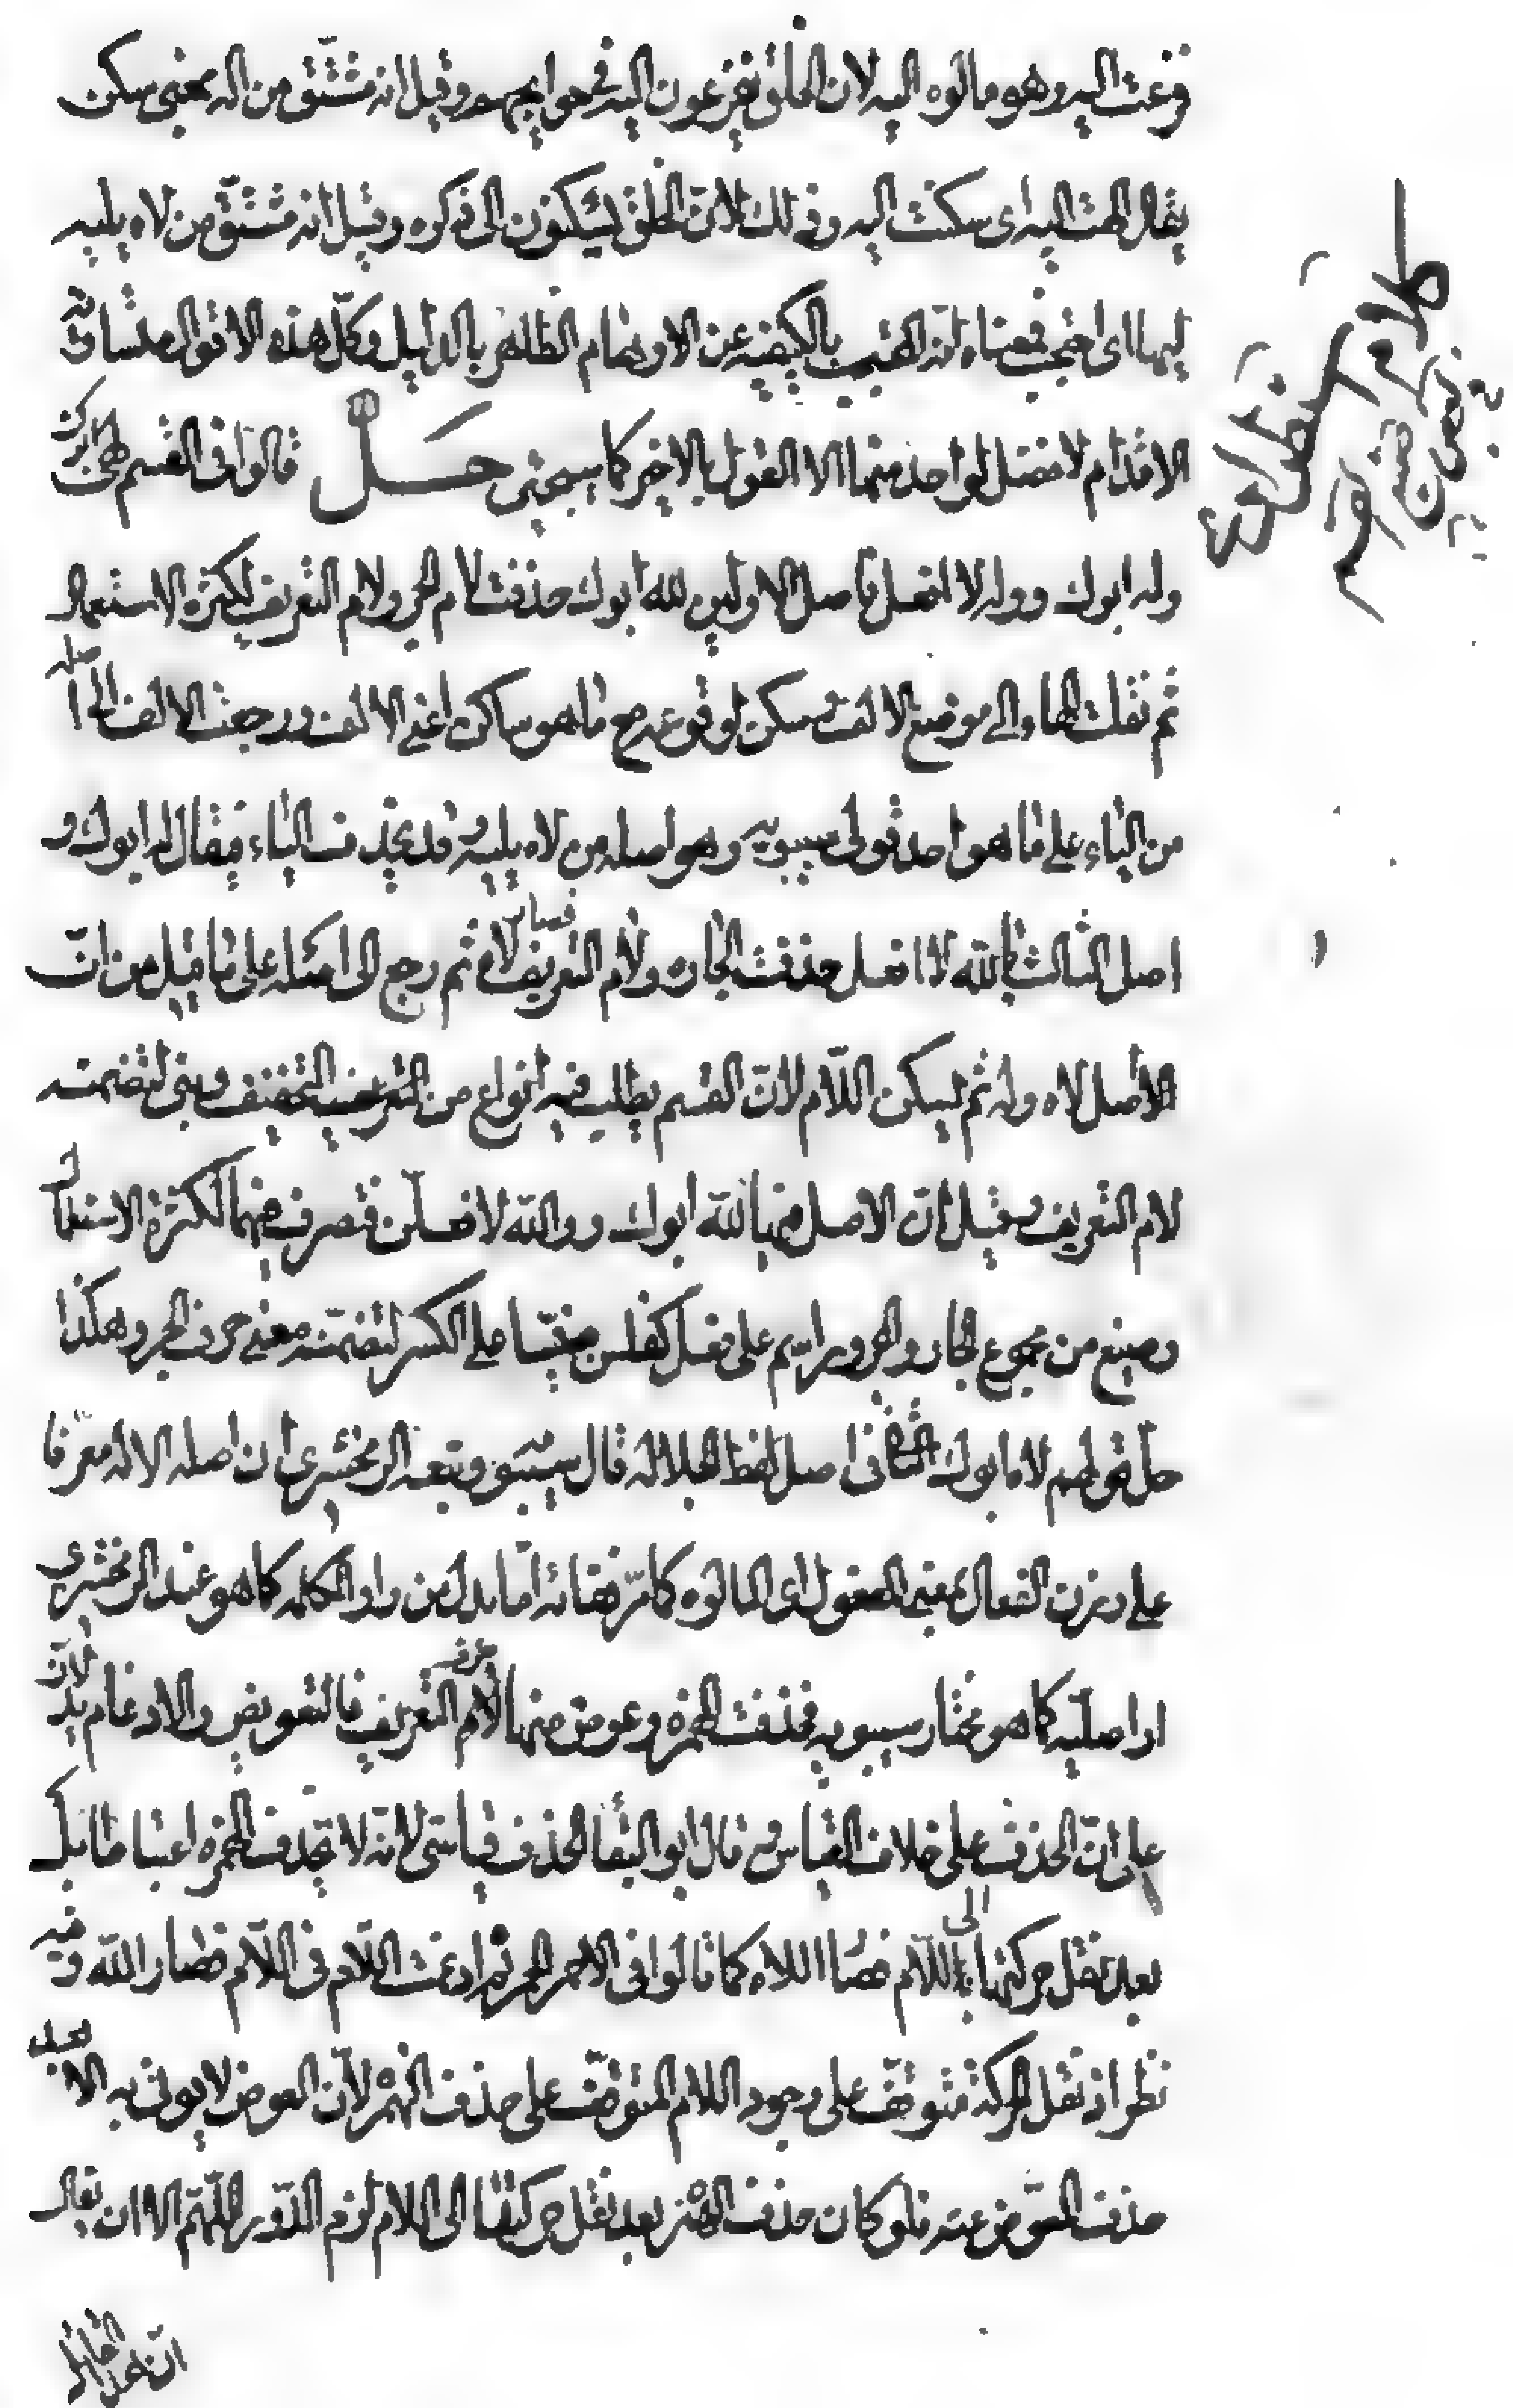 فزعت اليه وهو مالوه اليه لان الخلق يفزعون اليه في حوايجهم وقيل انه مشتق من اله بمعنى سكن
يقال الهت اليه اى سكنت اليه وذلك لان الخلق يسكنون الى ذكره وقيل انه مشتق من لاه يليه
ليها اى احتجب فمعناه انه المحتجب بالكيفية عن الاوهام الظاهر بالدلايل وكل هذه الاقوال متساوية
الاقدام لا فضل لواحد منها الا القول بالاخير كما سيجئى حل قالوا في القسم لهى ابوك
وله ابوك ووله لا افعل فاصل الاولين لله ابوك حذفت لام الجر ولام التعريف لكثرة الاستعمال
ثم نقلت الهاء الى موضع الالف فسكن لوقوعه مع ما هو ساكن اعنى الالف ورجعت الالف الى اصله
من الياء على ما هو احد قولى سيبويه وهو اصله من لاه يليه وقد يحذف الياء فيقال له ابوك و
اصل الثالث بالله لا افعل حذفت الجار ولام التعريف فصار لاه ثم رجع الى اصله على ما قيل من ان
الاصل لاه وله ثم يسكن اللام لان القسم يطلب فيه انواع من التخفيف وبنى لتضمنه
لام التعريف وقيل ان الاصل فيها لله ابوك ووالله لا فعلن فتصرف فيهما لكثرة الاستعمال
وصيغ من مجموع الجار والمجرور اسم على فعل كفلس مبنيا على الكسر لتضمنه معنى حرف الجر وهكذا
حل قولهم لاه ابوك الثانى اصل لفظ الجلالة قال سيبويه وتبعه الزمخشرى ان اصله الاله معرفا
على وزن الفعال بمعنى المفعول اى المالوه كما مر فهائه اما بدل من واو الكلمه كما هو عند الزمخشرى
او اصليه كما هو مختار سيبويه فحذفت الهمزه وعوض منها حرف لام التعريف فالتعويض والادغام يدلان
على ان الحذف على خلاف القياس وقال ابو البقا الحذف قياسى لانه لا تحذف الهمزه اعتباطا بل
بعد نقل حركتها الى اللام فصار اللاه كما قالوا في الاحمر الحمر ثم ادغمت اللام في اللام فصار الله وفيه
نظر اذ نقل الحركة متوقف على وجود اللام المتوقف على حذف الهمزه لان العوض لا يوتى به الا بعد
حذف المعوض عنه فلو كان حذف الهمزه بعد نقل حركتها الى اللام لزم الدور اللهم الا ان يقال